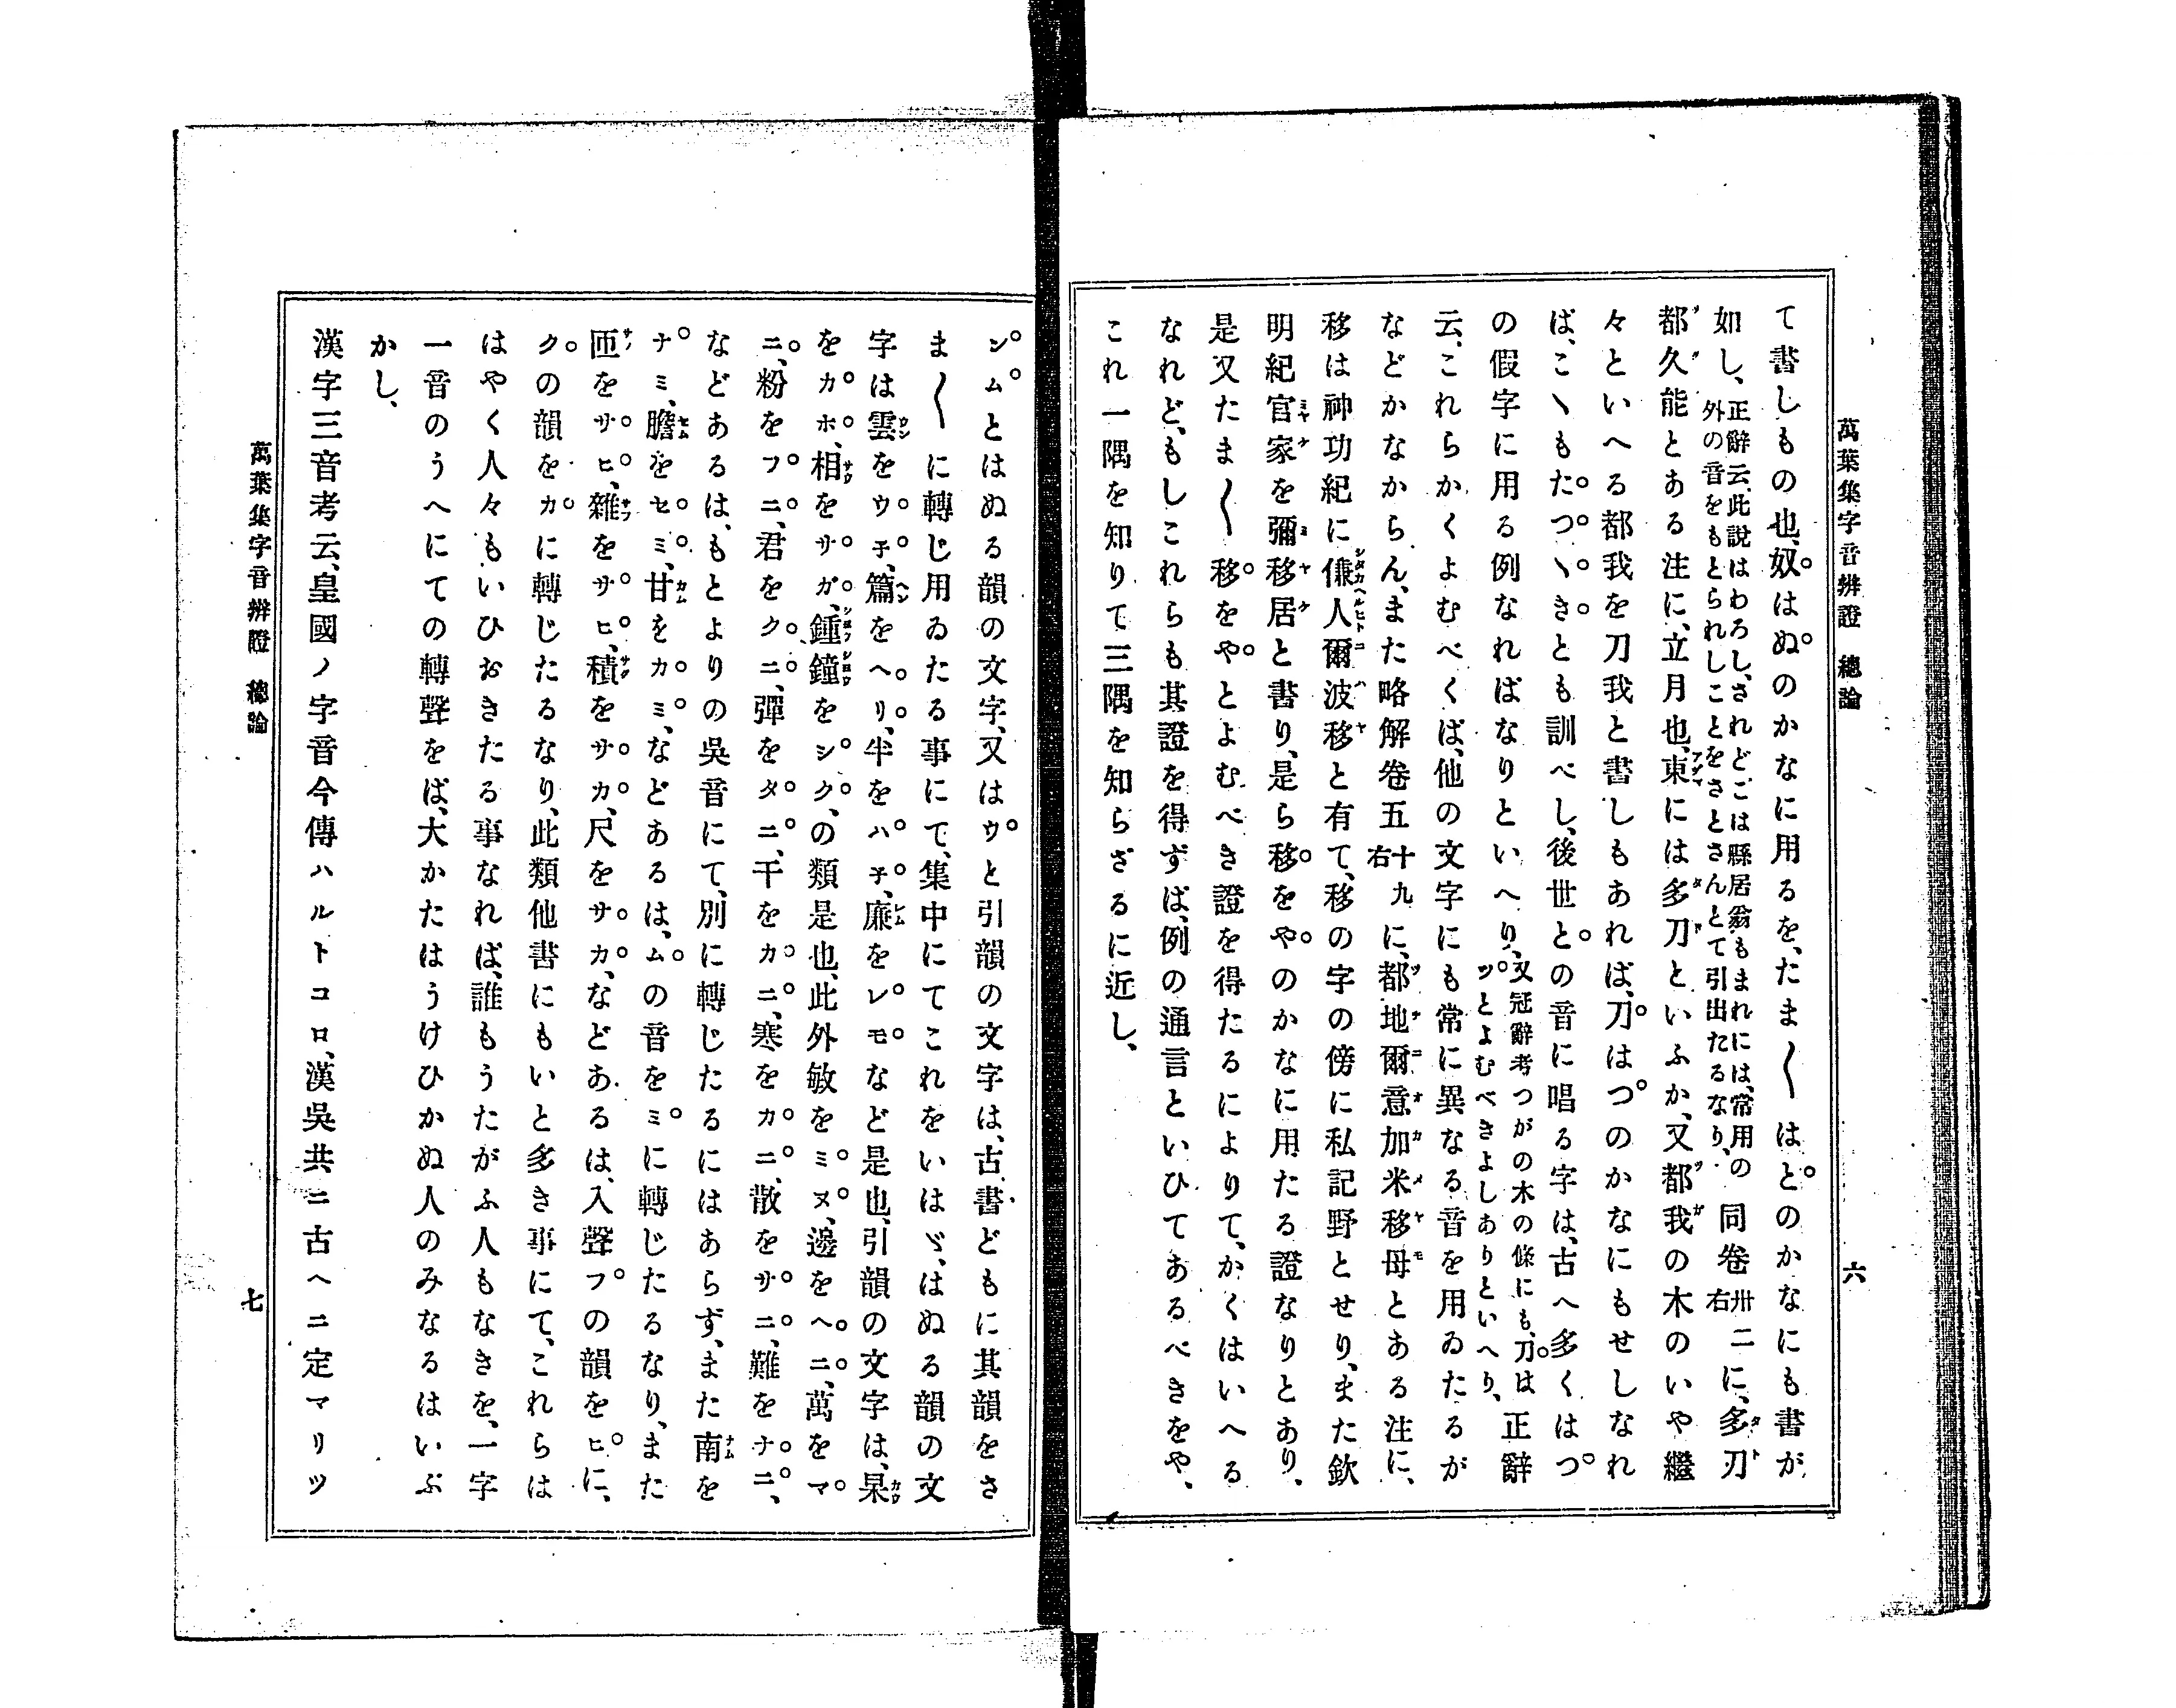 萬葉集字音辨證　總論
六
て書しもの也、奴はぬのかなに用るを、たま〳〵はとのかなにも書が
如し、正辭云、此説はわろし、されどこは縣居翁もまれには、常用の外の音をもとられしことをさとさんとて引出たるなり、同卷卅二右に、多刀
都久能とある注に、立月也、東には多刀といふか、又都我の木のいや繼
々といへる都我を刀我と書しもあれば、刀はつのかなにもせしなれ
ば、こゝもたつゝきとも訓べし、後世との音に唱る字は、古へ多くはつ
の假字に用る例なればなりといへり、又冠辭考つがの木の條にも、刀はツとよむべきよしありといへり、正辭
云、これらかくよむべくば、他の文字にも常に異なる音を用ゐたるが
などかなからん、また略解卷五十九右に、都地爾意加米移母とある注に、
移は神功紀に傔人爾波移と有て、移の字の傍に私記野とせり、また欽
明紀官家を彌移居と書り、是ら移をやのかなに用たる證なりとあり、
是又たま〳〵移をやとよむべき證を得たるによりて、かくはいへる
なれど、もしこれらも其證を得ずば、例の通言といひてあるべきをや、
これ一隅を知りて三隅を知らざるに近し、
ンムとはぬる韻の文字、又はウと引韻の文字は、古書どもに其韻をさ
ま〳〵に轉じ用ゐたる事にて、集中にてこれをいはゞ、はぬる韻の文
字は雲をウ子、篇をヘリ、半をハ子、廉をレモなど是也、引韻の文字は、杲
をカホ、相をサガ、鍾鐘をシク、の類是也、此外敏をミヌ、邊をヘニ、萬をマ
ニ、粉をフニ、君をクニ、彈をタニ、干をカニ、寒をカニ、散をサニ、難をナニ、
などあるは、もとよりの吳音にて、別に轉じたるにはあらず、また南を
ナミ、膽をセミ、甘をカミ、などあるは、ムの音をミに轉じたるなり、また
匝をサヒ、雜をサヒ、積をサカ、尺をサカ、などあるは、入聲フの韻をヒに、
クの韻をカに轉じたるなり、此類他書にもいと多き事にて、これらは
はやく人々もいひおきたる事なれば、誰もうたがふ人もなきを、一字
一音のうへにての轉聲をば、大かたはうけひかぬ人のみなるはいぶ
かし、
漢字三音考云、皇國ノ字音今傳ハルトコロ、漢吳共ニ古ヘニ定マリツ
萬葉集字音辨證　總論
七